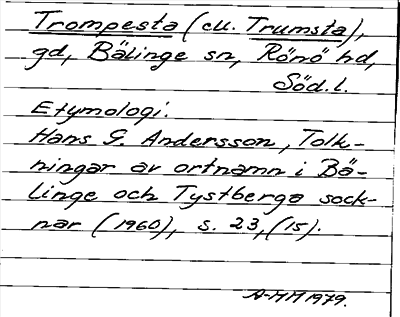 Trompesta (ell. Trumsta),
gd, Bälinge sn, Rönö hd,
Söd.l.
Etymologi.
Hans G. Andersson, Tolk-
ningar av ortnamn i Bä-
linge och Tystberga sock-
nar (1960), s. 23, (15).
A-MM 1979.